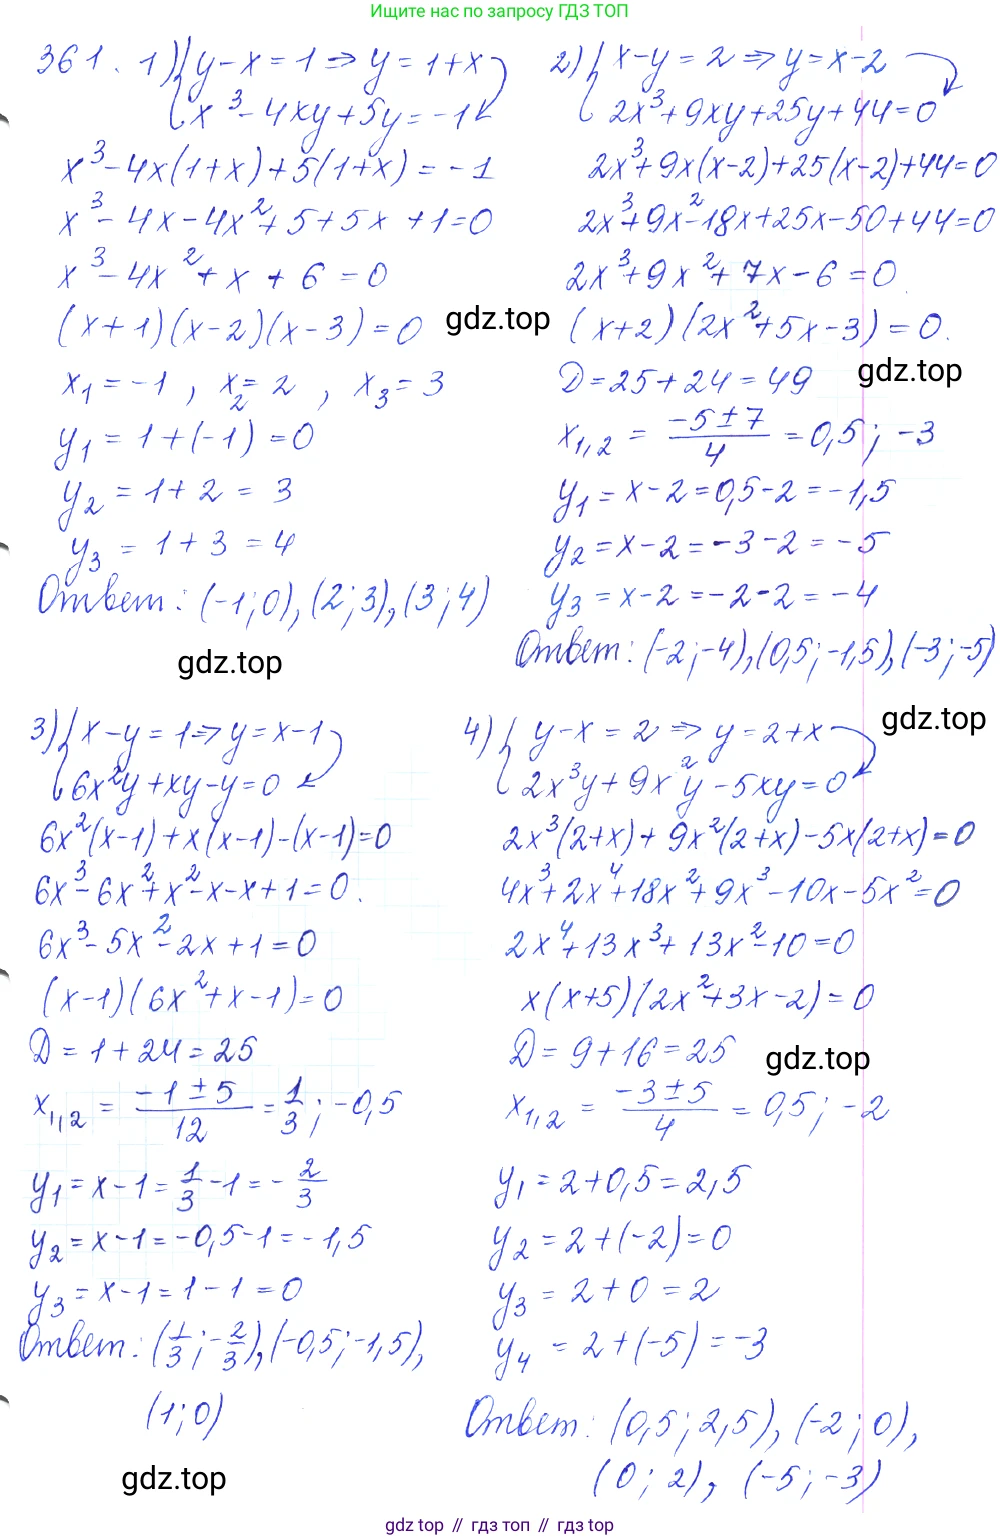 Ищите нас по запросу ГДЗ ТОП
361. 1) { y-x=1 => y=1+x
x³-4xy+5y=-1
x³-4x(1+x)+5(1+x)=-1
x³-4x-4x²+5+5x+1=0
x³-4x²+x+6=0
(x+1)(x-2)(x-3)=0
x₁=-1, x₂=2, x₃=3
y₁=1+(-1)=0
y₂=1+2=3
y₃=1+3=4
Ответ: (-1;0),(2;3),(3;4)
gdz.top
gdz.top
2) { x-y=2 => y=x-2
2x³+9xy+25y+44=0
2x³+9x(x-2)+25(x-2)+44=0
2x³+9x²-18x+25x-50+44=0
2x³+9x²+7x-6=0
(x+2)(2x²+5x-3)=0.
gdz.top
D=25+24=49
x₁,₂ = (-5±7)/4 = 0,5; -3
y₁=x-2=0,5-2=-1,5
y₂=x-2=-3-2=-5
y₃=x-2=-2-2=-4
Ответ: (-2;-4),(0,5;-1,5),(-3;-5)
gdz.top
3) { x-y=1 => y=x-1
6x²y+xy-y=0
6x²(x-1)+x(x-1)-(x-1)=0
6x³-6x²+x²-x-x+1=0.
6x³-5x²-2x+1=0
(x-1)(6x²+x-1)=0
D=1+24=25
x₁,₂ = (-1±5)/12 = 1/3; -0,5
y₁=x-1=1/3-1=-2/3
y₂=x-1=-0,5-1=-1,5
y₃=x-1=1-1=0
Ответ: (1/3;-2/3),(-0,5;-1,5),
(1;0)
gdz.top
4) { y-x=2 => y=2+x
2x³y+9x²y-5xy=0
2x³(2+x)+9x²(2+x)-5x(2+x)=0
4x³+2x⁴+18x²+9x³-10x-5x²=0
2x⁴+13x³+13x²-10=0
x(x+5)(2x²+3x-2)=0
D=9+16=25
gdz.top
x₁,₂ = (-3±5)/4 = 0,5; -2
y₁=2+0,5=2,5
y₂=2+(-2)=0
y₃=2+0=2
y₄=2+(-5)=-3
Ответ: (0,5;2,5),(-2;0),
(0;2), (-5;-3)
gdz.top // гдз топ // гдз.top